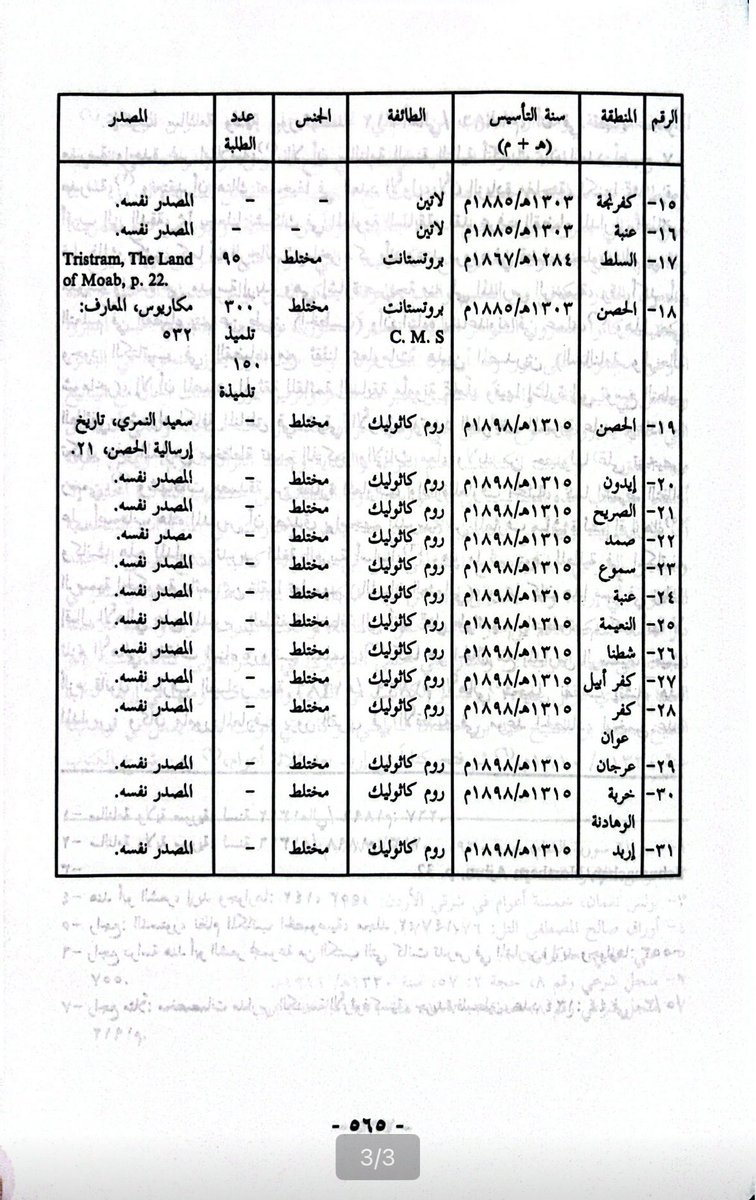 الرقم المنطقة سنة التأسيس الطائفة الجنس عدد المصدر
(هـ + م) الطلبة
١٥- كفرنجة ١٣٠٣هـ/١٨٨٥م لاتين - - المصدر نفسه.
١٦- عنبة ١٣٠٣هـ/١٨٨٥م لاتين - - المصدر نفسه.
١٧- السلط ١٢٨٤هـ/١٨٦٧م بروتستانت مختلط ٩٥ Tristram, The Land
of Moab, p. 22.
١٨- الحصن ١٣٠٣هـ/١٨٨٥م بروتستانت مختلط ٣٠٠ مكاريوس، المعارف:
C. M. S تلميذ ٥٣٢
١٥٠
تلميذة
١٩- الحصن ١٣١٥هـ/١٨٩٨م روم كاثوليك مختلط - سعيد النمري، تاريخ
إرسالية الحصن، ٢١.
٢٠- إيدون ١٣١٥هـ/١٨٩٨م روم كاثوليك مختلط - المصدر نفسه.
٢١- الصريح ١٣١٥هـ/١٨٩٨م روم كاثوليك مختلط - المصدر نفسه.
٢٢- صمد ١٣١٥هـ/١٨٩٨م روم كاثوليك مختلط - مصدر نفسه.
٢٣- سموع ١٣١٥هـ/١٨٩٨م روم كاثوليك مختلط - المصدر نفسه.
٢٤- عنبة ١٣١٥هـ/١٨٩٨م روم كاثوليك مختلط - المصدر نفسه.
٢٥- النعيمة ١٣١٥هـ/١٨٩٨م روم كاثوليك مختلط - المصدر نفسه.
٢٦- شطنا ١٣١٥هـ/١٨٩٨م روم كاثوليك مختلط - المصدر نفسه.
٢٧- كفر أبيل ١٣١٥هـ/١٨٩٨م روم كاثوليك مختلط - المصدر نفسه.
٢٨- كفر ١٣١٥هـ/١٨٩٨م روم كاثوليك مختلط - المصدر نفسه.
عوان
٢٩- عرجان ١٣١٥هـ/١٨٩٨م روم كاثوليك مختلط - المصدر نفسه.
٣٠- خربة ١٣١٥هـ/١٨٩٨م روم كاثوليك مختلط - المصدر نفسه.
الوهادنة
٣١- إربد ١٣١٥هـ/١٨٩٨م روم كاثوليك مختلط - المصدر نفسه.
- ٥٦٥ -
3/3